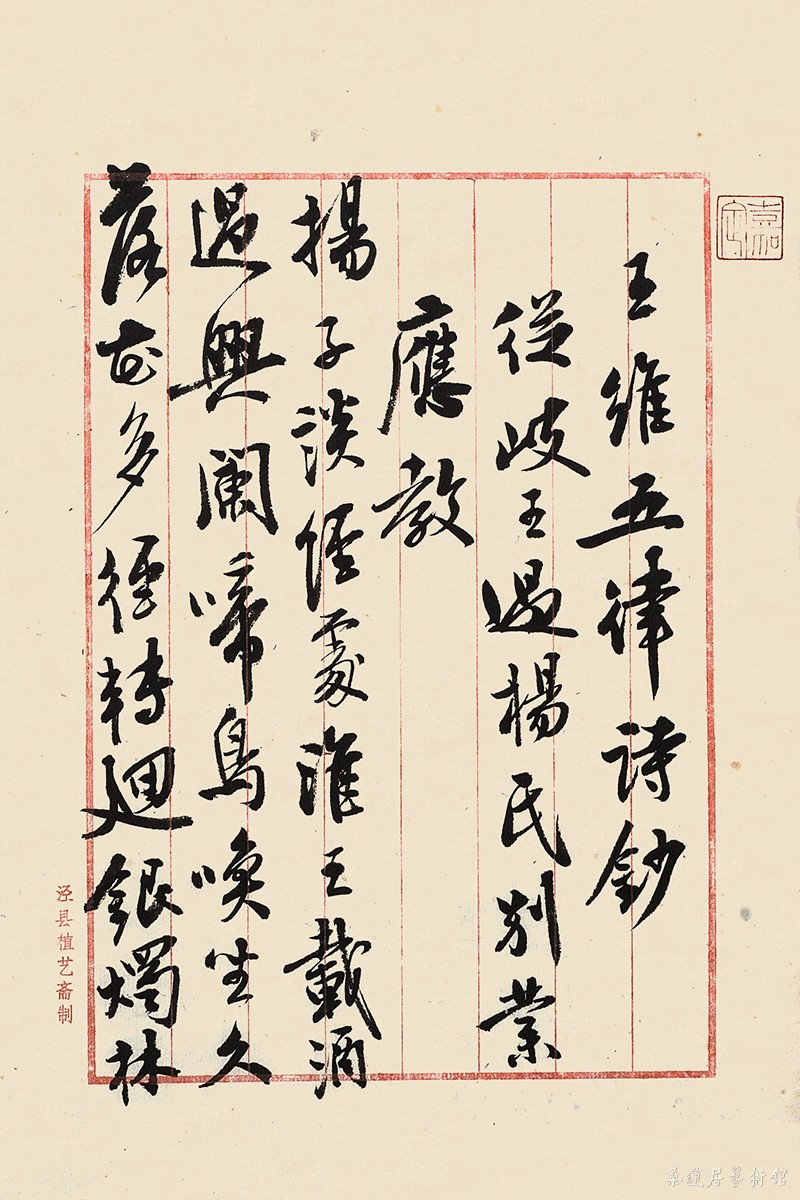 嘉定
王維五律詩鈔
從岐王過楊氏別業
應教
揚子談經處淮王載酒
過興闌啼鳥喚坐久
落花多徑轉迴銀燭林
泾县植艺斋制
桑蓮居藝術館